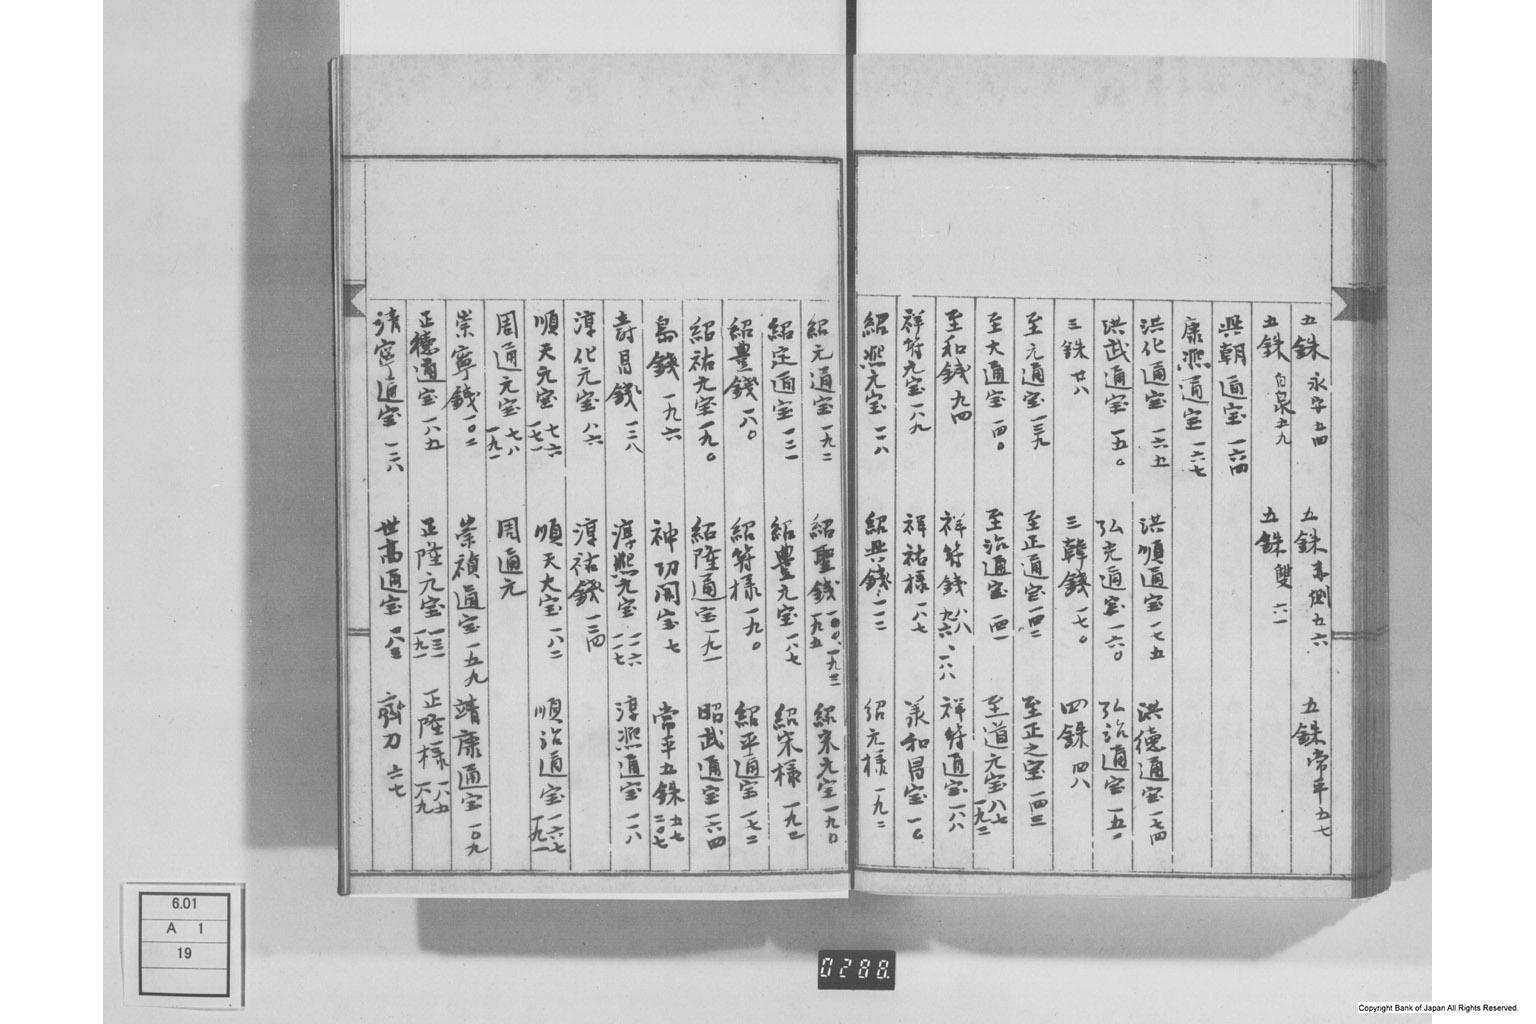 五銖 永字 五四 五銖 五六 五銖 常平 五七
五銖 白泉 五九 五銖 雙 六一
興朝通宝 一六四
康熙通宝 一六七
洪化通宝 一六五 洪順通宝 一七五 洪徳通宝 一七四
洪武通宝 一五〇 弘光通宝 一六〇 弘治通宝 一五二
三銖 廿八 三韓錢 一七〇 四銖 四八
至元通宝 一三九 至正通宝 一四二 至正之宝 一四三
至大通宝 一四〇 至治通宝 一四一 至道元宝 八七 一九二
至和錢 九四 祥符錢 八八 九六、一八八 祥符通宝 一八八
祥符元宝 一八九 祥祐様 一八七 承和昌宝 一〇
紹熙元宝 一一八 紹興錢 一一二 紹元様 一九二
紹元通宝 一九二 紹聖錢 一〇〇、一九三 一九五 紹宋元宝 一九〇
紹定通宝 一三一 紹豊元宝 一八七 紹宋様 一九二
紹豊錢 一八〇 紹符様 一九〇 紹平通宝 一七二
紹祐元宝 一九〇 紹隆通宝 一九一 昭武通宝 一六四
島錢 一九六 神功開宝 七 常平五銖 五七 二〇七
壽昌錢 一三八 淳熙元宝 一一六 一一七 淳熙通宝 一一八
淳化元宝 八六 淳祐錢 一三四
順天元宝 七六 一七一 順天大宝 一八二 順治通宝 一六七 一九一
周通元宝 七八 一九一 周通元
崇寧錢 一〇二 崇禎通宝 一五九 靖康通宝 一〇九
正徳通宝 一八五 正隆元宝 一三一 一九一 正隆様 一八五 一八九
清寧通宝 一二六 世高通宝 一八三 齊刀 六七
6.01
A 1
19
0288.
Copyright Bank of Japan All Rights Reserved.